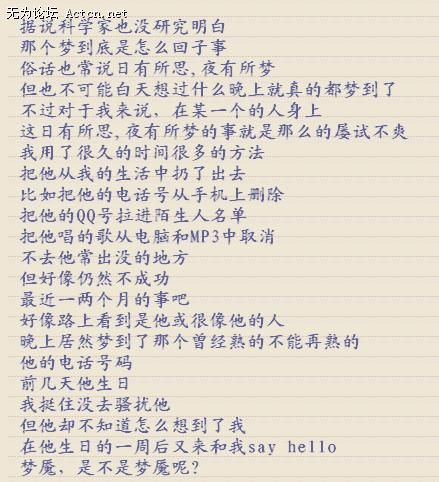 无为论坛 Actcn.net
据说科学家也没研究明白
那个梦到底是怎么回子事
俗话也常说日有所思,夜有所梦
但也不可能白天想过什么晚上就真的都梦到了
不过对于我来说，在某一个的人身上
这日有所思,夜有所梦的事就是那么的屡试不爽
我用了很久的时间很多的方法
把他从我的生活中扔了出去
比如把他的电话号从手机上删除
把他的QQ号拉进陌生人名单
把他唱的歌从电脑和MP3中取消
不去他常出没的地方
但好像仍然不成功
最近一两个月的事吧
好像路上看到是他或很像他的人
晚上居然梦到了那个曾经熟的不能再熟的
他的电话号码
前几天他生日
我挺住没去骚扰他
但他却不知道怎么想到了我
在他生日的一周后又来和我say hello
梦魇，是不是梦魇呢?